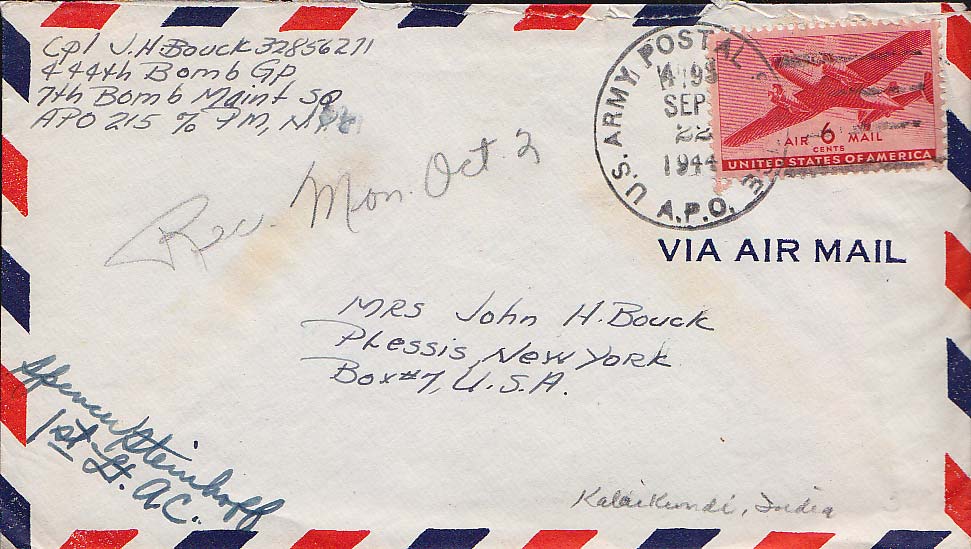 Cpl J.H. Bouck 32856271
444th Bomb Gp
7th Bomb Maint Sq
APO 215 % PM, N.Y.
U.S. ARMY POSTAL
SEP
22
1944
A.P.O.
AIR 6 MAIL
CENTS
UNITED STATES OF AMERICA
VIA AIR MAIL
Rec. Mon. Oct. 2
MRS John H. Bouck
Plessis, New York
Box #7, U.S.A.
Spencer Steinhoff
1st Lt. A.C.
Kalaikundi, India